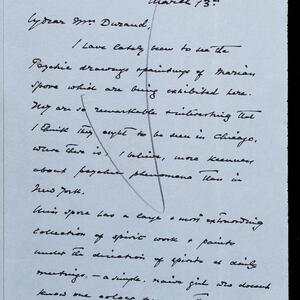 March 13th
My dear Mrs Durand,
I have lately been to see the
Psychic drawings & paintings of Marian
Spore which are being exhibited here.
They are so remarkable & interesting that
I think they ought to be seen in Chicago,
where there is, I believe, more keenness
about psychic phenomena than in
New York.
Miss Spore has a large & most extraordinary
collection of spirit work & paints
under the direction of spirits at daily
meetings, — a simple, naive girl who doesn't
know one colour